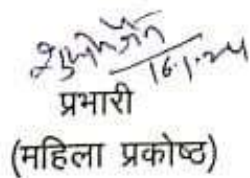 16.1.24
प्रभारी
(महिला प्रकोष्ठ)